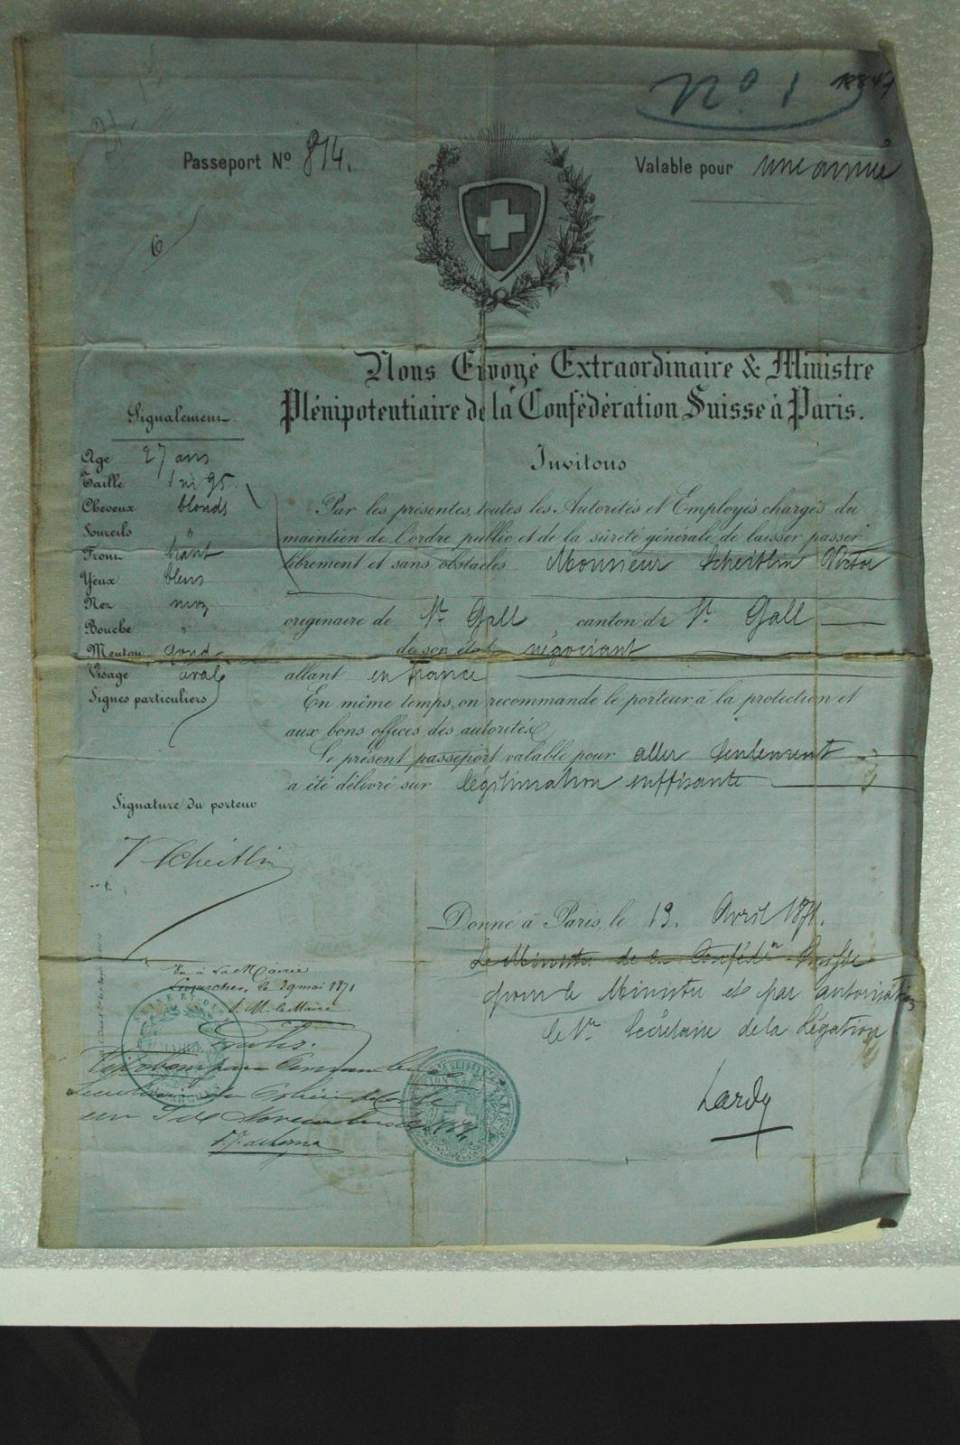 N° 1
Passeport N° 814.
Valable pour une année
6
Nous Envoyé Extraordinaire & Ministre
Plénipotentiaire de la Confédération Suisse à Paris.
Invitons
Par les présentes, toutes les Autorités et Employés chargés du
maintien de l'ordre public et de la sûreté générale de laisser passer
librement et sans obstacles Monsieur Scheitlin Victor
originaire de St. Gall canton de St. Gall
de son état négociant
allant en France
En même temps, on recommande le porteur à la protection et
aux bons offices des autorités.
Le présent passeport valable pour aller seulement
a été délivré sur légitimation suffisante
Signalement
Age 27 ans
Taille 1 m 95
Cheveux blonds
Sourcils "
Front haut
Yeux bleus
Nez moy
Bouche "
Menton rond
Visage oval
Signes particuliers
Signature du porteur
V Scheitlin
Donné à Paris, le 19. Avril 1871.
Le Ministre de la Confédon Suisse
pour le Ministre et par autorisation
le Secrétaire de la Légation
Lardy
Vu à la Mairie
le 29 mai 1871
le Maire